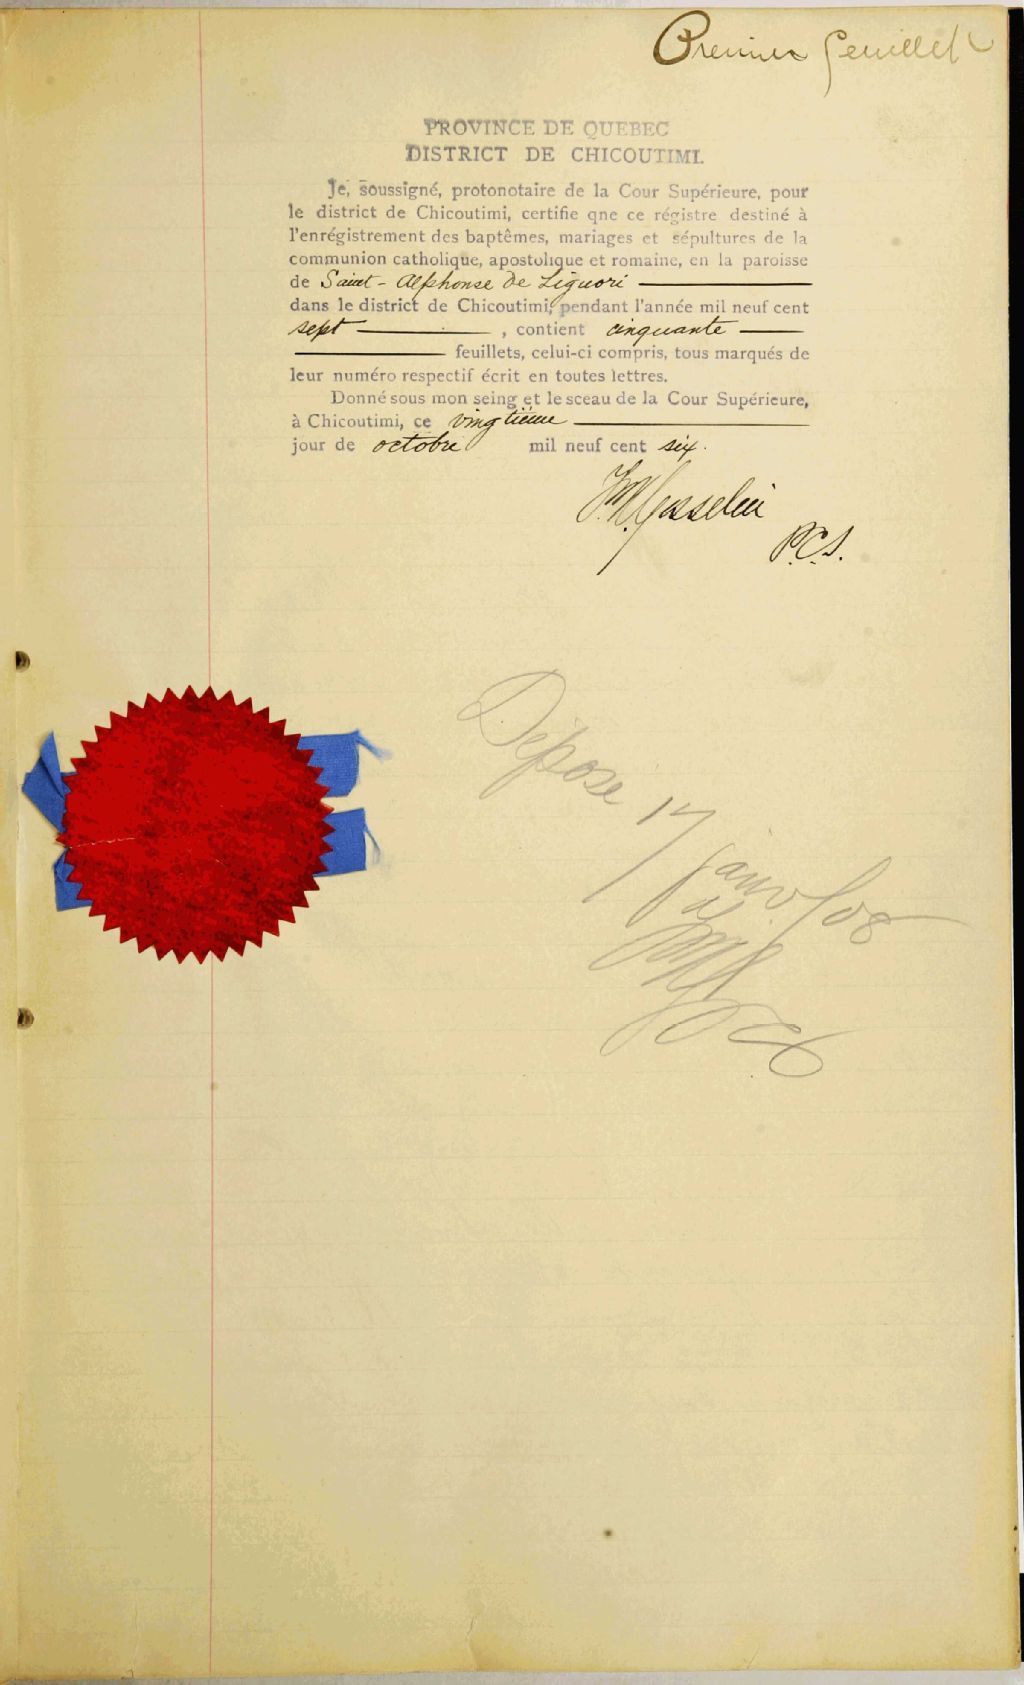 Premier feuillet
PROVINCE DE QUEBEC
DISTRICT DE CHICOUTIMI.
Je, soussigné, protonotaire de la Cour Supérieure, pour
le district de Chicoutimi, certifie qne ce régistre destiné à
l'enrégistrement des baptêmes, mariages et sépultures de la
communion catholique, apostolique et romaine, en la paroisse
de Saint-Alphonse de Liguori
dans le district de Chicoutimi, pendant l'année mil neuf cent
sept , contient cinquante
feuillets, celui-ci compris, tous marqués de
leur numéro respectif écrit en toutes lettres.
Donné sous mon seing et le sceau de la Cour Supérieure,
à Chicoutimi, ce vingtième
jour de octobre mil neuf cent six.
Gosselin
P.C.S.
Déposé 17
janv/08